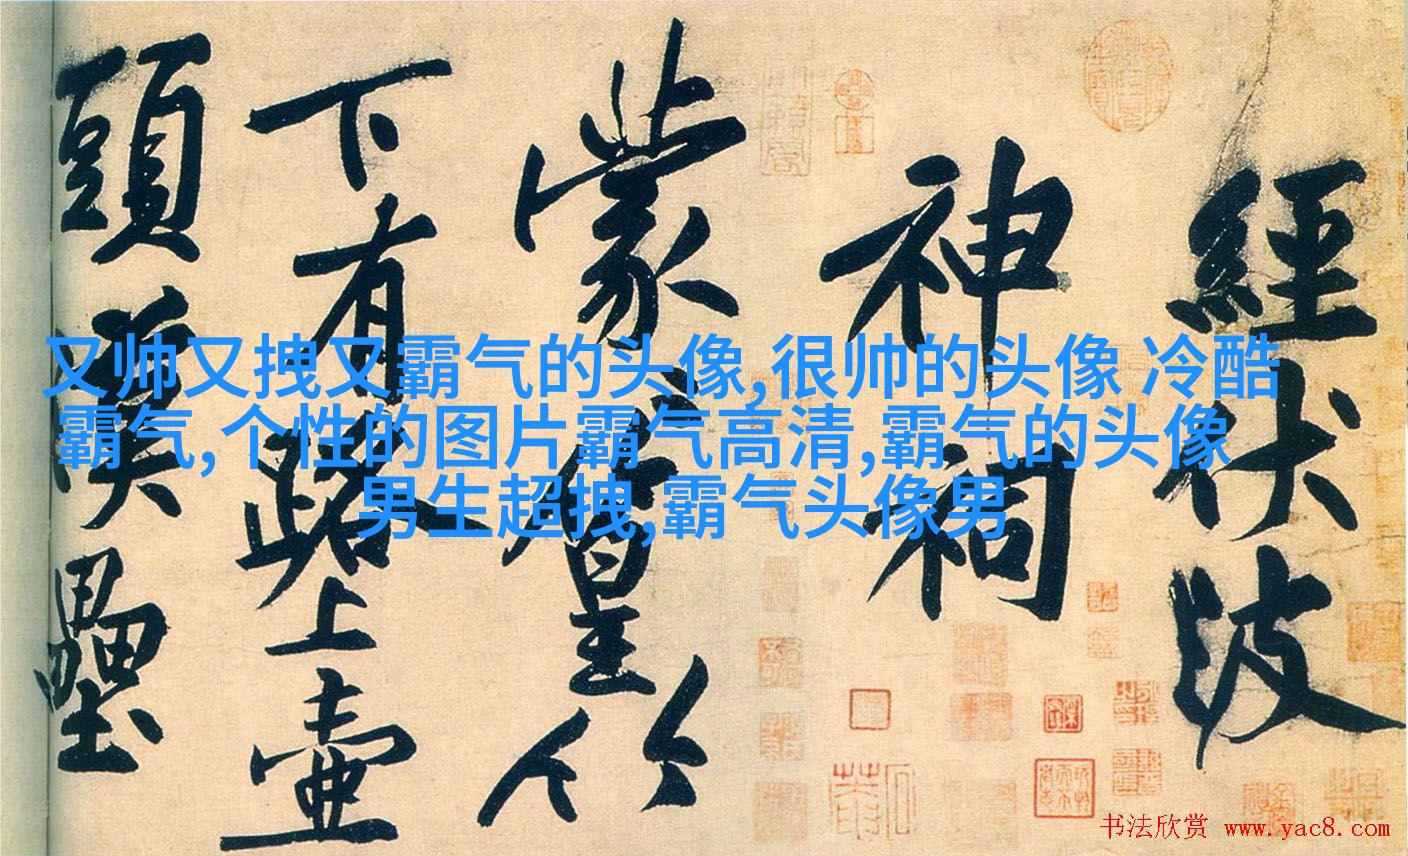 經伏波
神祠
蒙〻篁竹
下有路上壺
頭漢壘
又帅又拽又霸气的头像,很帅的头像 冷酷
霸气,个性的图片霸气高清,霸气的头像
男生超拽,霸气头像男
书法欣赏 www.yac8.com